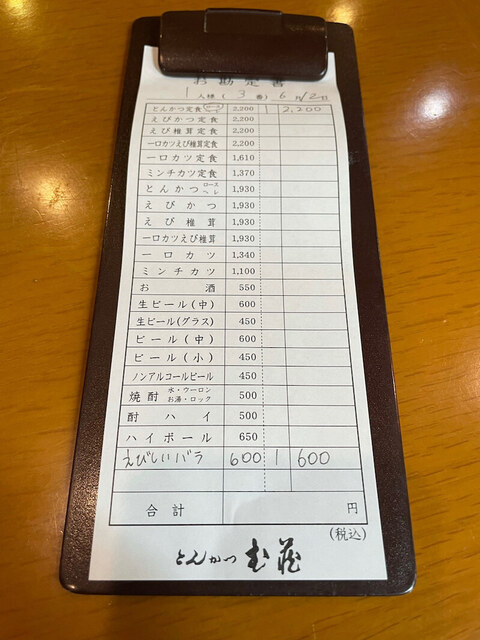 お勘定書
1 人様 ( 3 番) 6月12日
とんかつ定食 ロース ヘレ 2,200 1 2,200
えびかつ定食 2,200
えび椎茸定食 2,200
一口カツえび椎茸定食 2,200
一口カツ定食 1,610
ミンチカツ定食 1,370
とんかつ ロース ヘレ 1,930
えびかつ 1,930
えび椎茸 1,930
一口カツえび椎茸 1,930
一口カツ 1,340
ミンチカツ 1,100
お酒 550
生ビール(中) 600
生ビール(グラス) 450
ビール(中) 600
ビール(小) 450
ノンアルコールビール 450
焼酎 水・ウーロン お湯・ロック 500
酎ハイ 500
ハイボール 650
えびしいバラ 600 1 600
合計 円
(税込)
とんかつ むさし